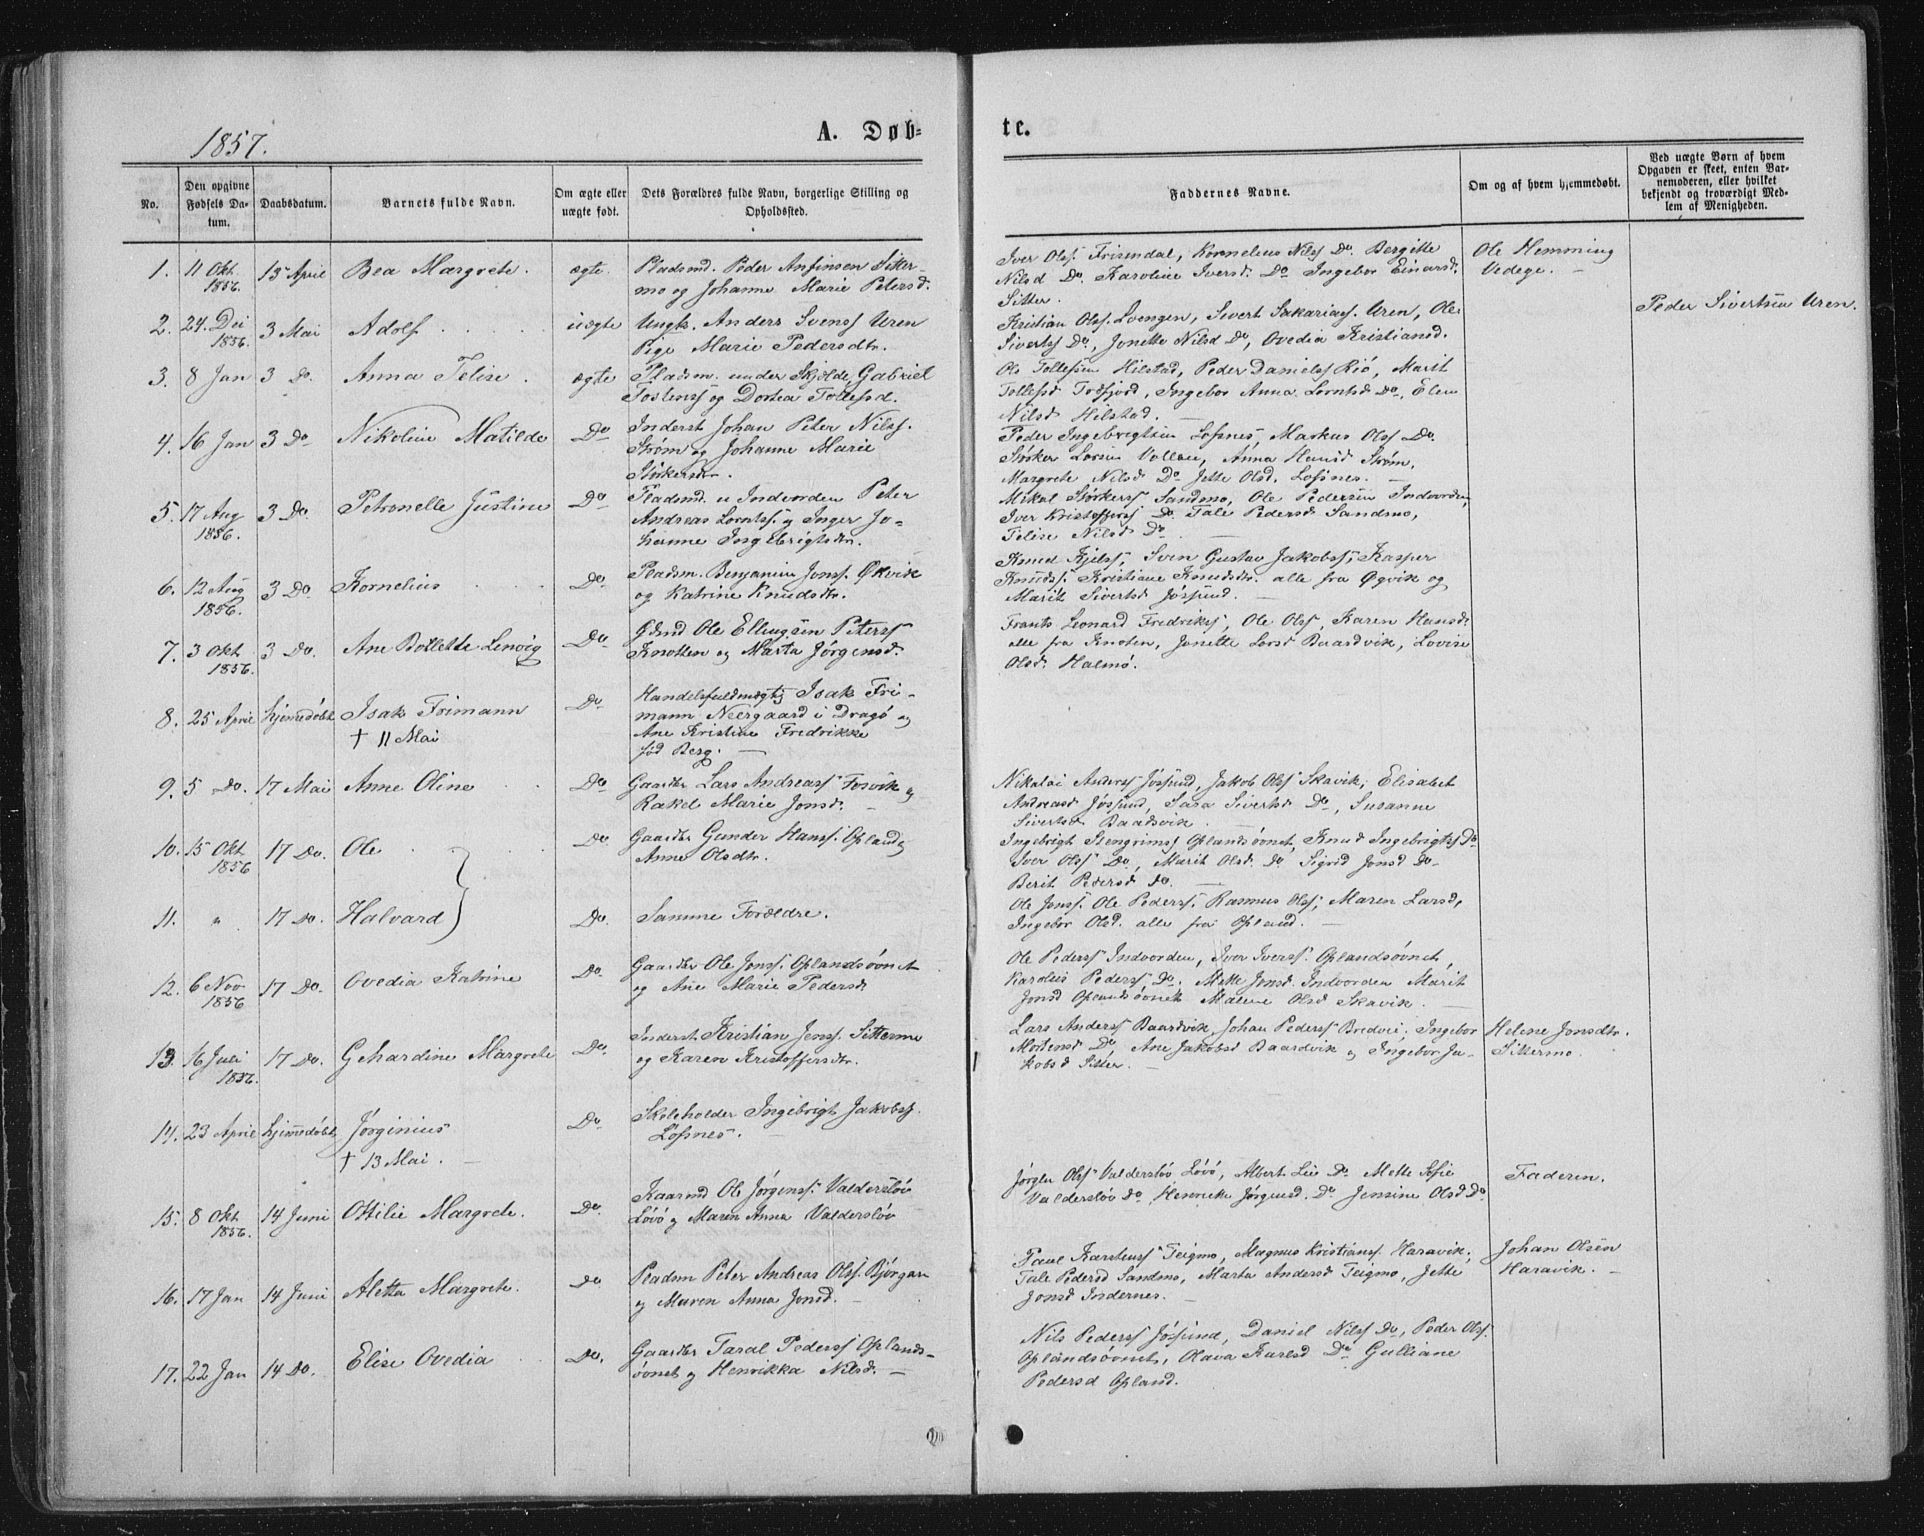 1857.
A. Døb-
te.
No.
Den opgivne
Fødsels Da-
tum.
Daabsdatum.
Barnets fulde Navn.
Om ægte eller
uægte født.
Dets Forældres fulde Navn, borgerlige Stilling og
Opholdssted.
Faddernes Navne.
Om og af hvem hjemmedøbt.
Ved uægte Børn af hvem
Opgaven er skeet, enten Bar-
nemoderen, eller hvilket
bekjendt og troværdigt Med-
lem af Menigheden.
1. 11 Okt 1856. 13 April Bea Margrete. ægte.
Pladsmd. Peder Anfinsen Sitter-
mo og Johanne Marie Petersd.
Iver Olss. Frisendal, Kornelius Nilss Do. Bergitte
Nilsd Do. Karoline Iversd. Do Ingebor Einarsd.
Sitter.
Ole Hemming
Vedege.
2. 24. Dei 1856. 3 Mai Adolf uægte
Ungk. Anders Svenss Uren
Pige Marie Pedersdtr.
Kristian Olss. Loengen, Sivert Sakariass. Uren, Ole
Sivertss Do, Jonette Nilsd Do, Ovedia Kristiansd.
Peder Sivertsen Uren.
3. 8 Jan 3 Do. Anna Felise. ægte
Pladsm. under Skjelde, Gabriel
Tostenss og Dortea Tollefsd.
Ole Tollefsen Hilstad, Peder Danielss Riö, Marit
Tollefsd Trefjord, Ingebor Anna Lorntsd Do, Elen
Nilsd Hilstad.
4. 16 Jan 3 Do Nikoline Matilde Do
Inderst Johan Peter Nilss.
Strøm og Johanne Marie
Störkersdtr.
Peder Ingebrigtsen Lofsnes, Markus Olss Do.
Störker Larsen Vollan, Anna Hansd Strøm,
Margrete Nilsd Do Jette Olsd. Lofsnes.
5. 17 Aug 1856. 3 Do Petronelle Justine Do
Pladsmd. u Indvorden Peter
Andreas Lorntss. og Inger Jo-
hanne Ingebrigtsdtr.
Mikal Störkerss Sandmo, Ole Pedersen Indvorden,
Iver Kristofferss Do Tale Pedersd Sandmo,
Felise Nilsd Do
6. 12 Aug 1856. 3 Do Kornelius Do.
Pladsm. Benjamin Jonss. Økvik
og Katrine Knudsdtr.
Knud Kjelss, Sven Gustav Jakobss, Kasper
Knudss. Kristiane Knudsdtr. alle fra Øqvik og
Marit Sivertsd Jøssund.
7. 3 Okt 1856. 3 Do. Ane Bollette Lenvig Do
Ole Ellingsen Peterss
Knotten og Marta Jørgensd.
Frants Leonard Fredrikss, Ole Olss, Karen Hansd.
alle fra Knoten, Jonette Larsd Baardvik, Lovise
Olsd. Halmö.
8. 25 April hjemmedøbt Isak Frimann
† 11 Mai
Do
Handelsfuldmægtig Isak Fri-
mann Neergaard i Dragö og
Ane Kristine Fredrikke
fød Berg.
9. 5 Do. 17 Mai Anne Oline Do
Gaardbr Lars Andreass Fosvik og
Rakel Marie Jonsd.
Nikolai Anderss Jøssund, Jakob Olss Skavik, Elisabet
Andreasd Jøssund, Sara Sivertsd Do, Susanne
Sivertsd Baadsvik.
10. 15 Okt 1856 17 Do. Ole Do.
Gaardbr Gunder Hanss. Opland og
Anne Olsdtr.
Ingebrigt Stengrimss Oplandsövnet, Knud Ingebrigtss Do
Iver Olss Do, Marit Olsd. Do Sigrid Jonsd Do
Berit Pedersd Do.
11. " 17 Do. Halvard Do.
Samme Forældre.
Ole Jonss. Ole Pederss. Rasmus Olss, Maren Larsd,
Ingebor Olsd. alle fra Opland.
12. 6 Nov 1856 17 Do. Ovedia Katrine Do.
Gaardbr Ole Jonss. Oplandsövnet
og Ane Marie Pedersd.
Ole Pederss Indvorden, Iver Iverss Oplandsövnet,
Karolus Pederss, Do. Mette Jonsd. Indvorden Marit
Jonsd Oplandsövnet Malene Olsd Skavik.
13. 16 Juli 1856. 17 Do. Gehardine Margrete Do.
Inderst Kristian Jenss. Sittermo
og Karen Kristoffersdtr.
Lars Anderss Baardvik, Johan Pederss Bredvei, Ingebor
Mortensd Do, Ane Jakobsd Baardvik og Ingebor Ja-
kobsd Sitter.
Helene Jonsdtr.
Sittermo.
14. 23 April hjemmedøbt Jørginius
† 13 Mai.
Do.
Skoleholder Ingebrigt Jakobss.
Lofsnes.
15. 8 Okt 1856. 14 Juni Ottilie Margrete. Do.
Ole Jørgenss. Valderslöv
Lövö og Maren Anna Valderslöv
Jörgen Olss Valderslöv Lövö, Albert Do Mette Sofie
Valderslöv Do Henrikke Jørgensd. Do Jensine Olsd Do
Faderen.
16. 17 Jan 14 Juni Aletta Margrete. Do
Pladsm Peter Andreas Olss. Bjørgan
og Maren Anna Jonsd.
Paul Karstenss Teigmo, Magnus Kristianss. Haravik,
Tale Pedersd Sandmo, Marta Andersd Teigmo, Jette
Jonsd Indernes.
Johan Olsen
Haravik.
17. 22 Jan 14 Do. Elise Ovedia Do.
Gaardbr Taral Pederss Oplands-
övnet og Henrikka Nilsd.
Nils Pederss Jøssund, Daniel Nilss Do, Peder Olss.
Oplandsövnet, Olava Karlsd Do Gulliane
Pedersd Opland.